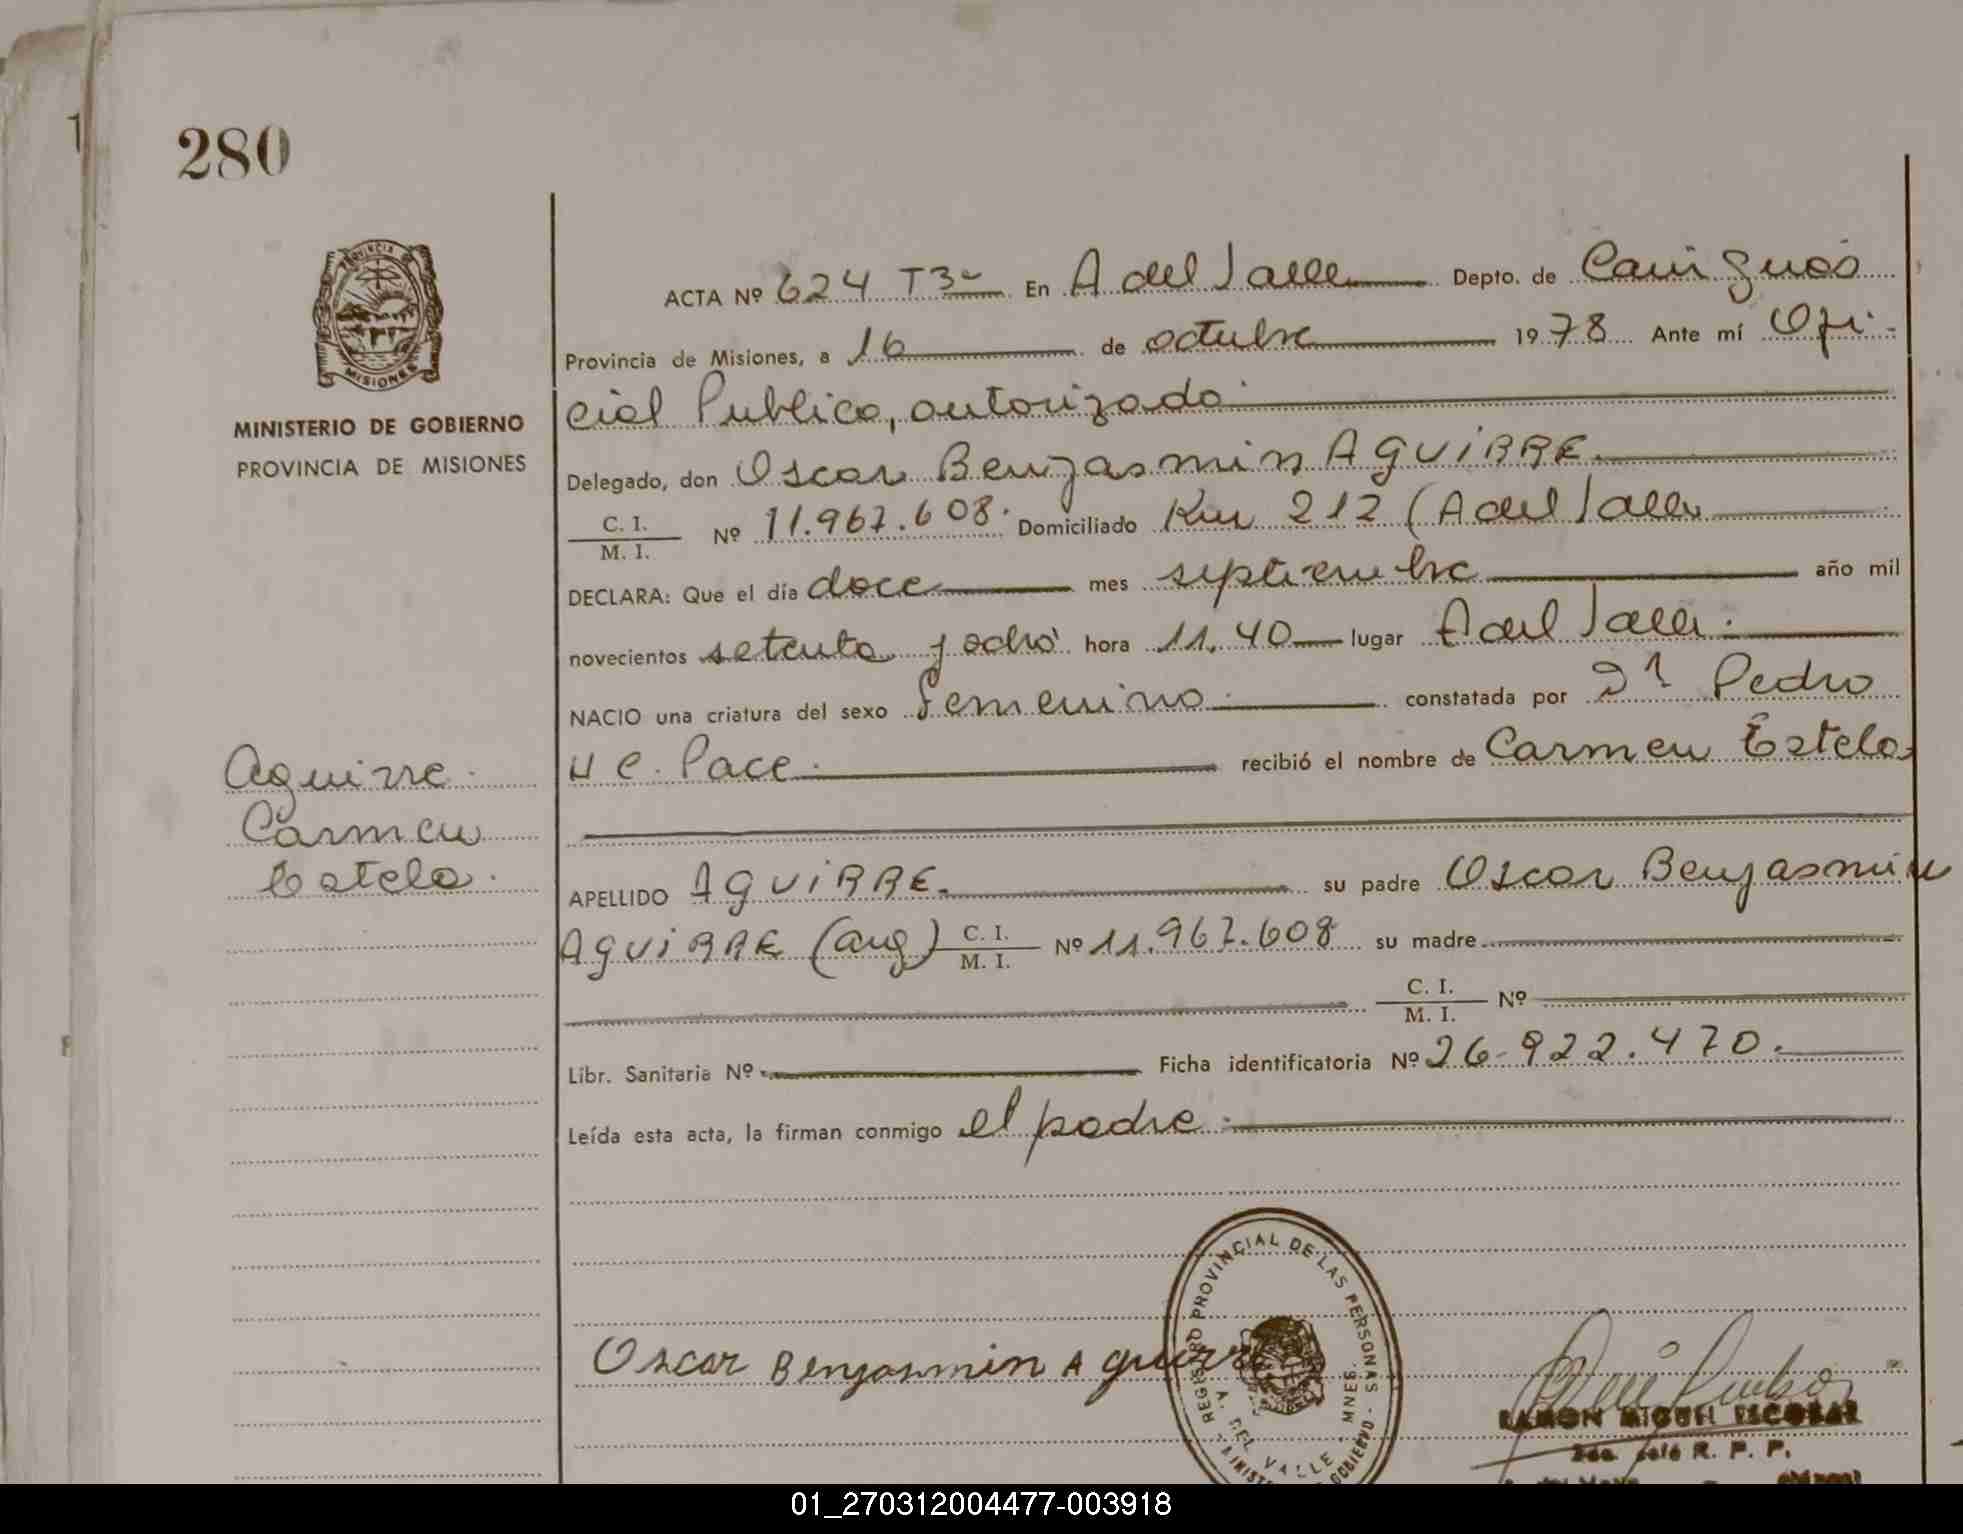 280
PROVINCIA DE
MISIONES
MINISTERIO DE GOBIERNO
PROVINCIA DE MISIONES
Aguirre.
Carmen
Estela.
ACTA Nº 624 T3º En A del Valle Depto. de Cainguás
Provincia de Misiones, a 16 de octubre 1978 Ante mí Ofi-
cial Publico, autorizado
Delegado, don Oscar Benjasmin AGUIRRE.
C. I.
M. I. Nº 11.967.608. Domiciliado Km 212 (A del Valle
DECLARA: Que el día doce mes septiembre año mil
novecientos setenta y ocho hora 11.40 lugar A del Valle.
NACIO una criatura del sexo femenino. constatada por Dr Pedro
H C. Pace. recibió el nombre de Carmen Estela
APELLIDO AGUIRRE. su padre Oscar Benjasmin
AGUIRRE (arg) C. I. M. I. Nº 11.967.608 su madre
C. I.
M. I. Nº
Libr. Sanitaria Nº Ficha identificatoria Nº 26-922.470.
Leída esta acta, la firman conmigo el padre.
Oscar Benjasmin Aguirre
REGISTRO PROVINCIAL DE LAS PERSONAS - MINIST GOBIERNO
A. DEL VALLE - MNES.
RAMON MIGUEL ESCOBAR
R. P. P.
01_270312004477-003918